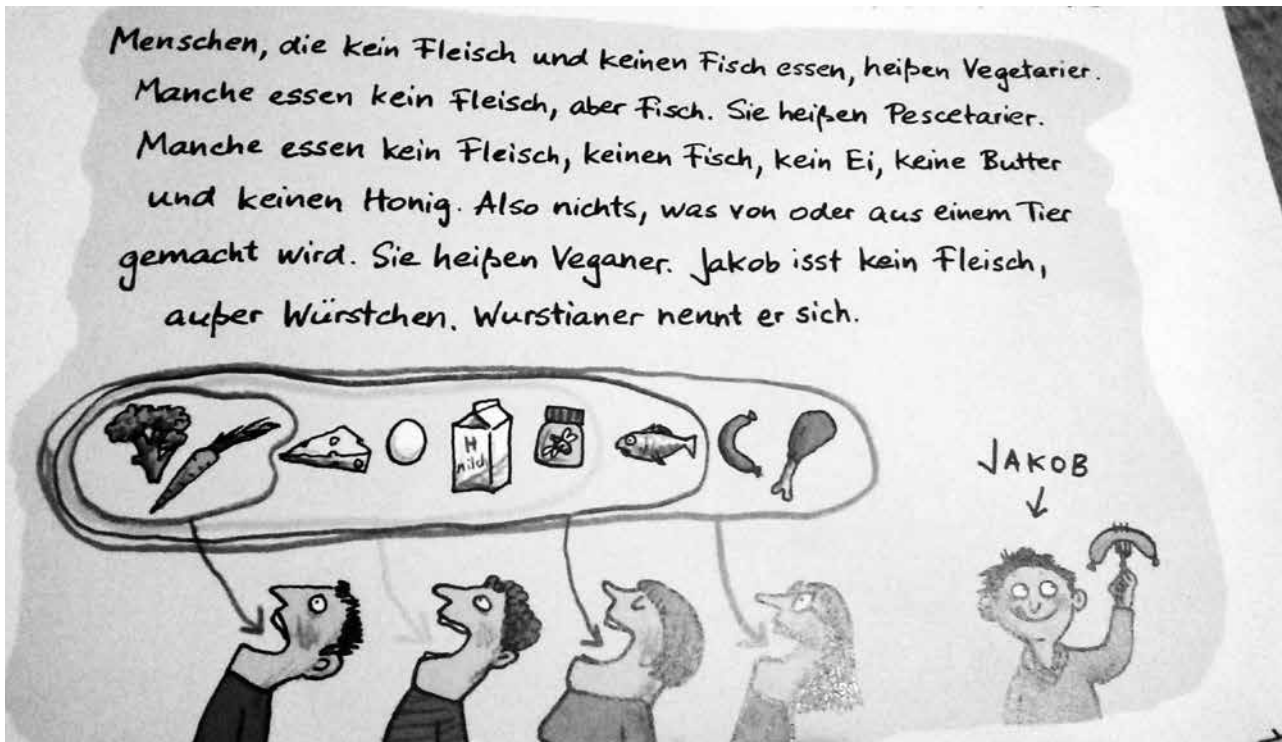 Menschen, die kein Fleisch und keinen Fisch essen, heißen Vegetarier.
Manche essen kein Fleisch, aber Fisch. Sie heißen Pescetarier.
Manche essen kein Fleisch, keinen Fisch, kein Ei, keine Butter
und keinen Honig. Also nichts, was von oder aus einem Tier
gemacht wird. Sie heißen Veganer. Jakob isst kein Fleisch,
außer Würstchen. Wurstianer nennt er sich.
H
Milch
JAKOB